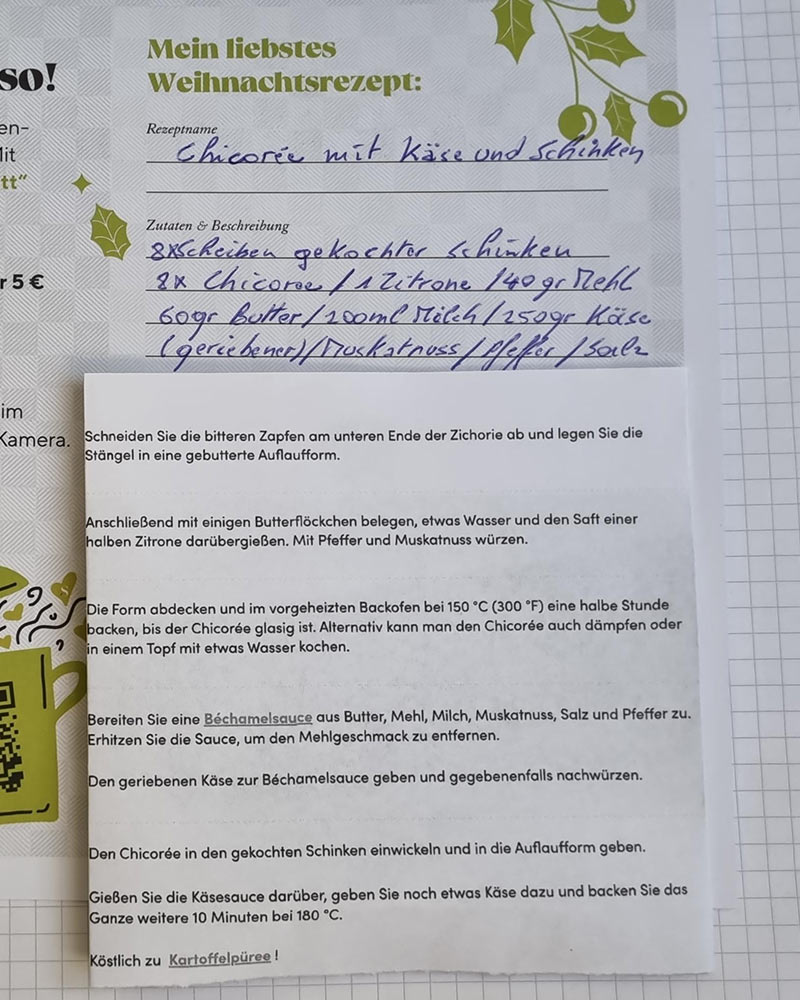 so!
en-
Mit
tt“
r 5 €
im
Kamera.
Mein liebstes
Weihnachtsrezept:
Rezeptname
Chicorée mit Käse und Schinken
Zutaten & Beschreibung
8xScheiben gekochter Schinken
8x Chicoree / 1 Zitrone / 40 gr Mehl
60gr Butter / 200ml Milch / 250gr Käse
(geriebener) / Muskatnuss / Pfeffer / Salz
Schneiden Sie die bitteren Zapfen am unteren Ende der Zichorie ab und legen Sie die
Stängel in eine gebutterte Auflaufform.
Anschließend mit einigen Butterflöckchen belegen, etwas Wasser und den Saft einer
halben Zitrone darübergießen. Mit Pfeffer und Muskatnuss würzen.
Die Form abdecken und im vorgeheizten Backofen bei 150 °C (300 °F) eine halbe Stunde
backen, bis der Chicorée glasig ist. Alternativ kann man den Chicorée auch dämpfen oder
in einem Topf mit etwas Wasser kochen.
Bereiten Sie eine Béchamelsauce aus Butter, Mehl, Milch, Muskatnuss, Salz und Pfeffer zu.
Erhitzen Sie die Sauce, um den Mehlgeschmack zu entfernen.
Den geriebenen Käse zur Béchamelsauce geben und gegebenenfalls nachwürzen.
Den Chicorée in den gekochten Schinken einwickeln und in die Auflaufform geben.
Gießen Sie die Käsesauce darüber, geben Sie noch etwas Käse dazu und backen Sie das
Ganze weitere 10 Minuten bei 180 °C.
Köstlich zu Kartoffelpüree !